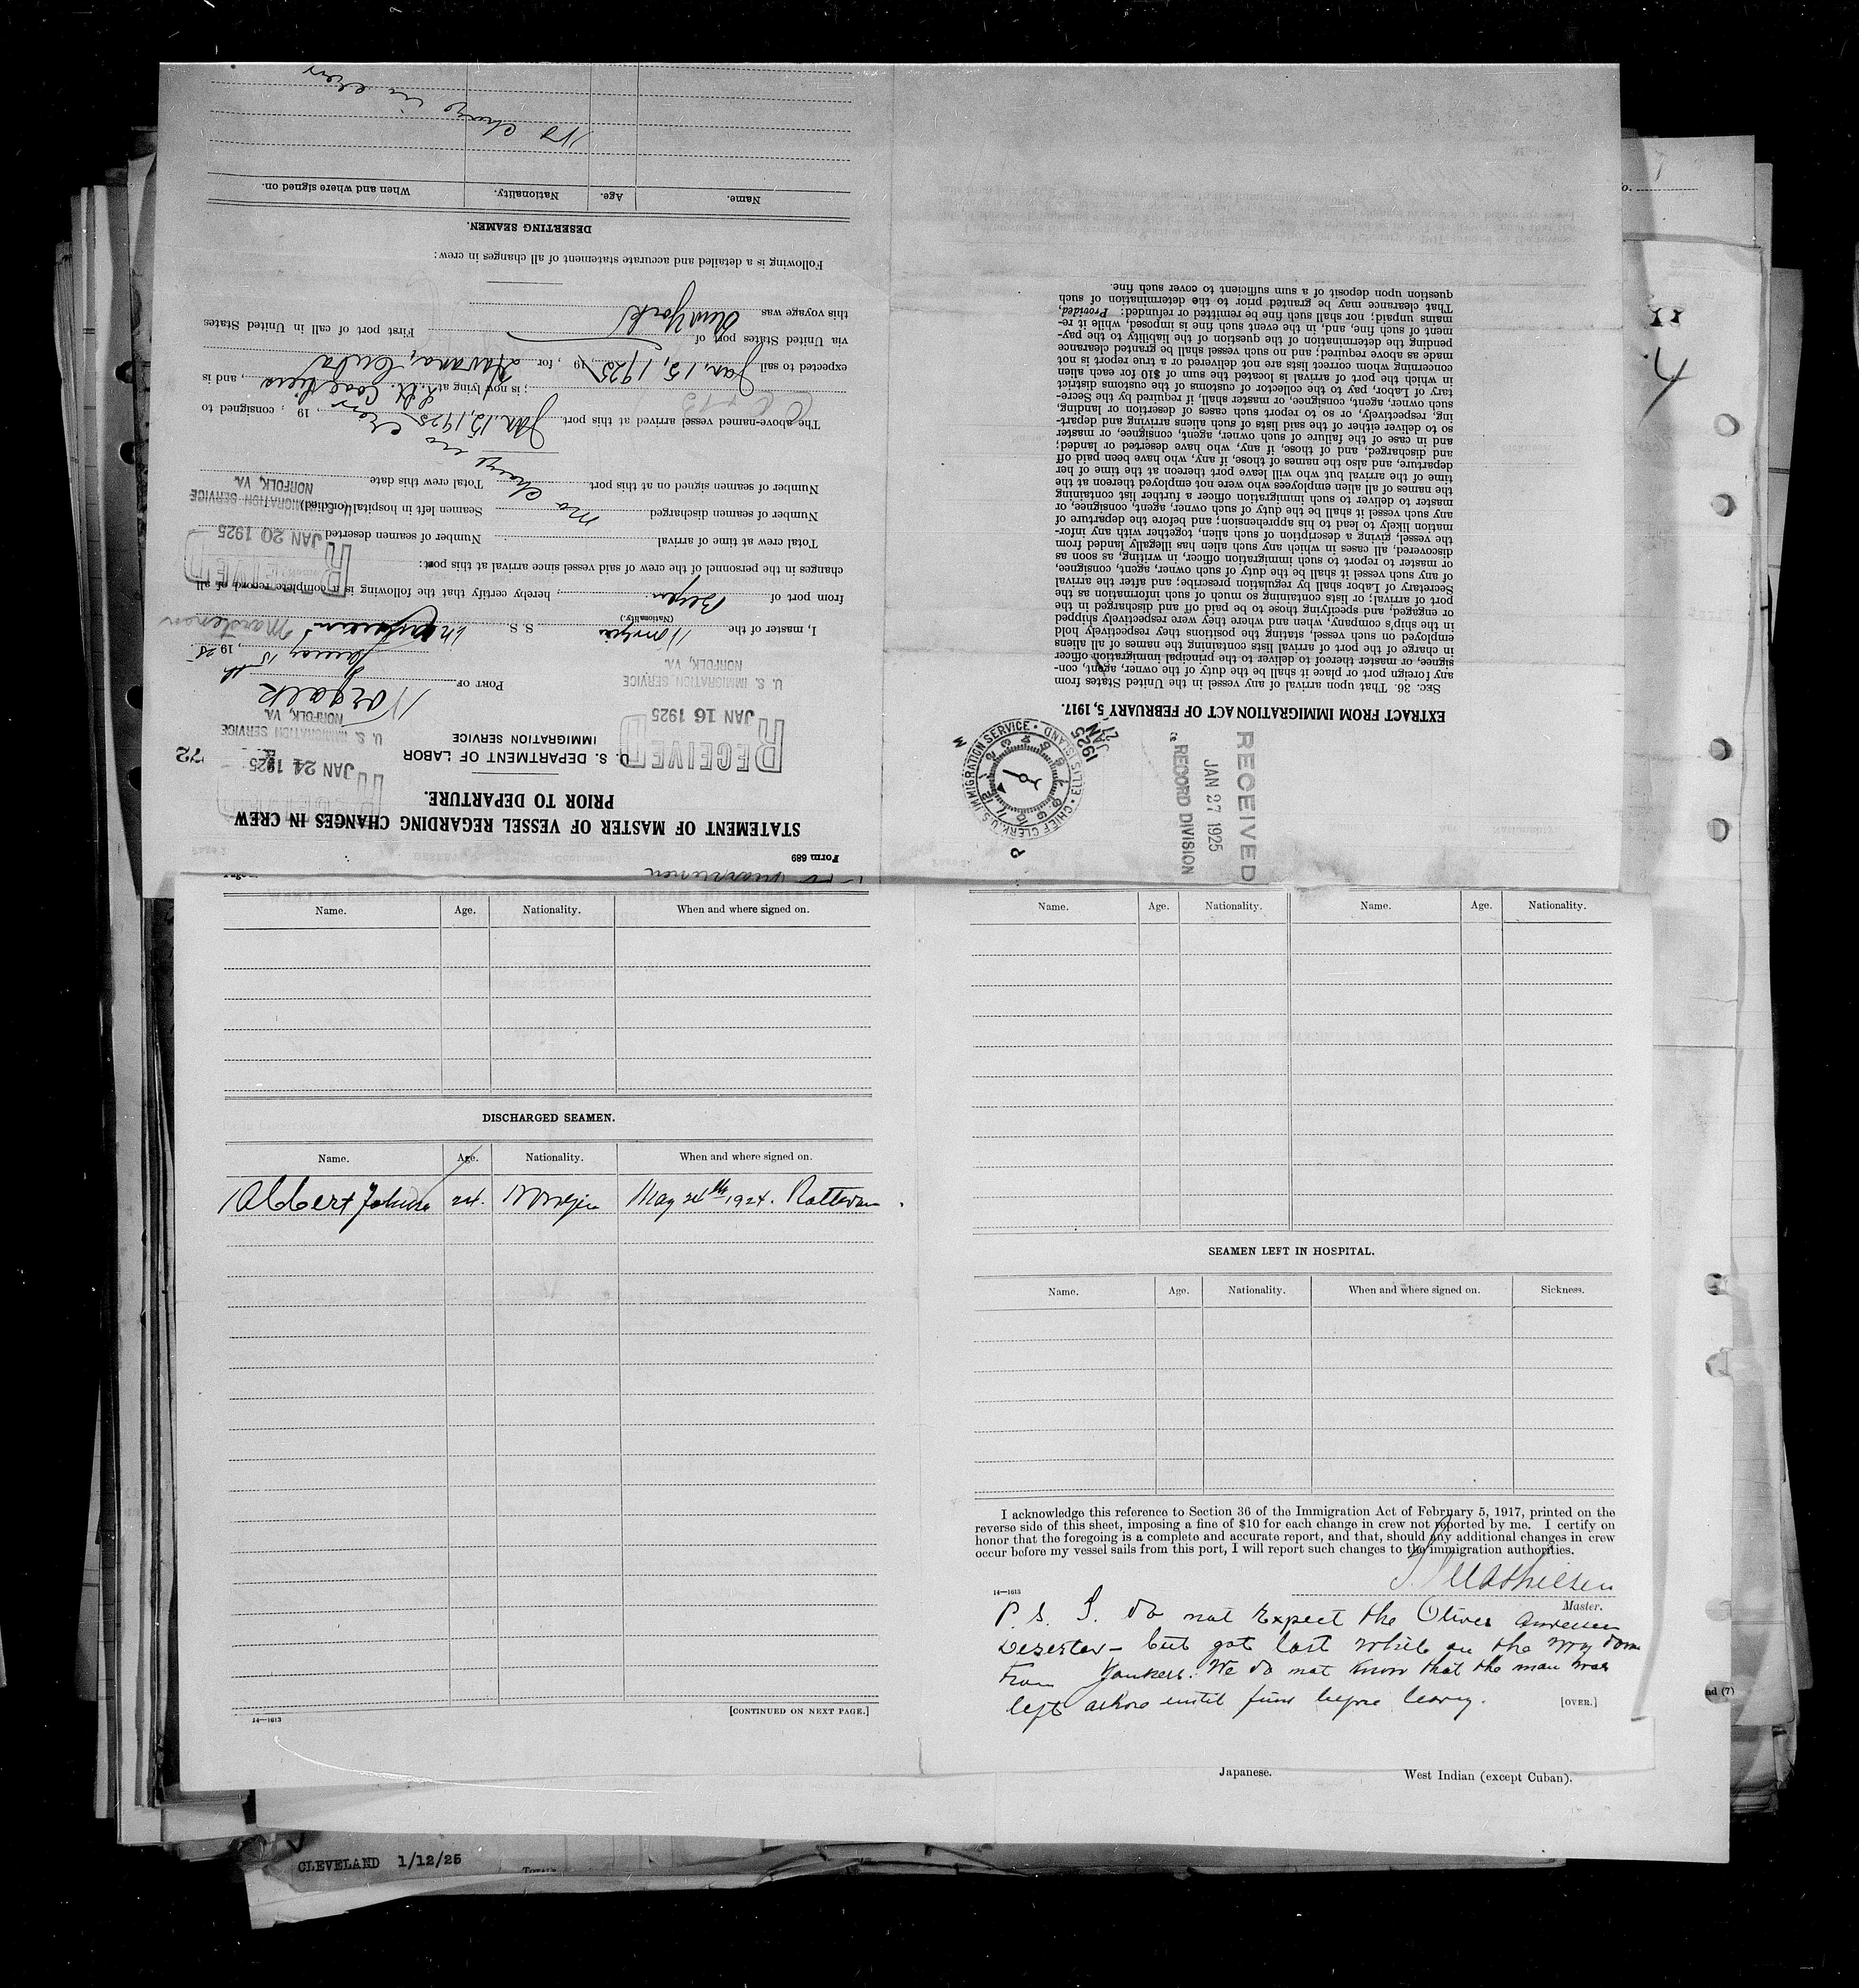 Form 689
STATEMENT OF MASTER OF VESSEL REGARDING CHANGES IN CREW
PRIOR TO DEPARTURE.
U. S. DEPARTMENT OF LABOR
IMMIGRATION SERVICE
RECEIVED
JAN 16 1925
U. S. IMMIGRATION SERVICE
NORFOLK, VA.
RECEIVED
JAN 24 1925
U. S. IMMIGRATION SERVICE
NORFOLK, VA.
72
PORT OF Norfolk
January 15th, 1925
I, master of the Norwegian S. S.
(Nationality.)
from port of Bergen, hereby certify that the following is a complete record of all
changes in the personnel of the crew of said vessel since arrival at this port:
RECEIVED
JAN 20 1925
U. S. IMMIGRATION SERVICE
NORFOLK, VA.
Total crew at time of arrival Number of seamen deserted
Number of seamen discharged Seamen left in hospital (or died)
Number of seamen signed on at this port Total crew this date
no change in crew
The above-named vessel arrived at this port Jan. 15, 1925, 19 ; consigned to
; is now lying at , and is
expected to sail Jan. 15, 1925, 19 , for Havana, Cuba
via United States port of First port of call in United States
this voyage was New York
Following is a detailed and accurate statement of all changes in crew:
DESERTING SEAMEN.
Name. Age. Nationality. When and where signed on.
No change in crew
RECEIVED
JAN 27 1925
RECORD DIVISION
CHIEF CLERK, U.S. IMMIGRATION SERVICE · ELLIS ISLAND ·
1925
JAN
27
EXTRACT FROM IMMIGRATION ACT OF FEBRUARY 5, 1917.
SEC. 36. That upon arrival of any vessel in the United States from
any foreign port or place it shall be the duty of the owner, agent, con-
signee, or master thereof to deliver to the principal immigration officer
in charge of the port of arrival lists containing the names of all aliens
employed on such vessel, stating the positions they respectively hold
in the ship's company, when and where they were respectively shipped
or engaged, and specifying those to be paid off and discharged in the
port of arrival; or lists containing so much of such information as the
Secretary of Labor shall by regulation prescribe; and after the arrival
of any such vessel it shall be the duty of such owner, agent, consignee,
or master to report to such immigration officer, in writing, as soon as
discovered, all cases in which any such alien has illegally landed from
the vessel, giving a description of such alien, together with any infor-
mation likely to lead to his apprehension; and before the departure of
any such vessel it shall be the duty of such owner, agent, consignee, or
master to deliver to such immigration officer a further list containing
the names of all alien employees who were not employed thereon at the
time of the arrival but who will leave port thereon at the time of her
departure, and also the names of those, if any, who have been paid off
and discharged, and of those, if any, who have deserted or landed;
and in case of the failure of such owner, agent, consignee, or master
so to deliver either of the said lists of such aliens arriving and depart-
ing, respectively, or so to report such cases of desertion or landing,
such owner, agent, consignee, or master shall, if required by the Secre-
tary of Labor, pay to the collector of customs of the customs district
in which the port of arrival is located the sum of $10 for each alien
concerning whom correct lists are not delivered or a true report is not
made as above required; and no such vessel shall be granted clearance
pending the determination of the question of the liability to the pay-
ment of such fine, and, in the event such fine is imposed, while it re-
mains unpaid; nor shall such fine be remitted or refunded: Provided,
That clearance may be granted prior to the determination of such
question upon deposit of a sum sufficient to cover such fine.
Name. Age. Nationality. When and where signed on.
DISCHARGED SEAMEN.
Name. Age. Nationality. When and where signed on.
Albert 24. May 24th 1924.
14—1613
[CONTINUED ON NEXT PAGE.]
Name. Age. Nationality. Name. Age. Nationality.
SEAMEN LEFT IN HOSPITAL.
Name. Age. Nationality. When and where signed on. Sickness.
I acknowledge this reference to Section 36 of the Immigration Act of February 5, 1917, printed on the
reverse side of this sheet, imposing a fine of $10 for each change in crew not reported by me. I certify on
honor that the foregoing is a complete and accurate report, and that, should any additional changes in crew
occur before my vessel sails from this port, I will report such changes to the immigration authorities.
14—1613
Master.
P. S. I. do not Expect the Oliver
Deserter - but got lost while on the way down
from Yonkers. We do not know that the man was
left ashore until before leaving.
[OVER.]
nd (7)
Japanese. West Indian (except Cuban).
CLEVELAND 1/12/25
4